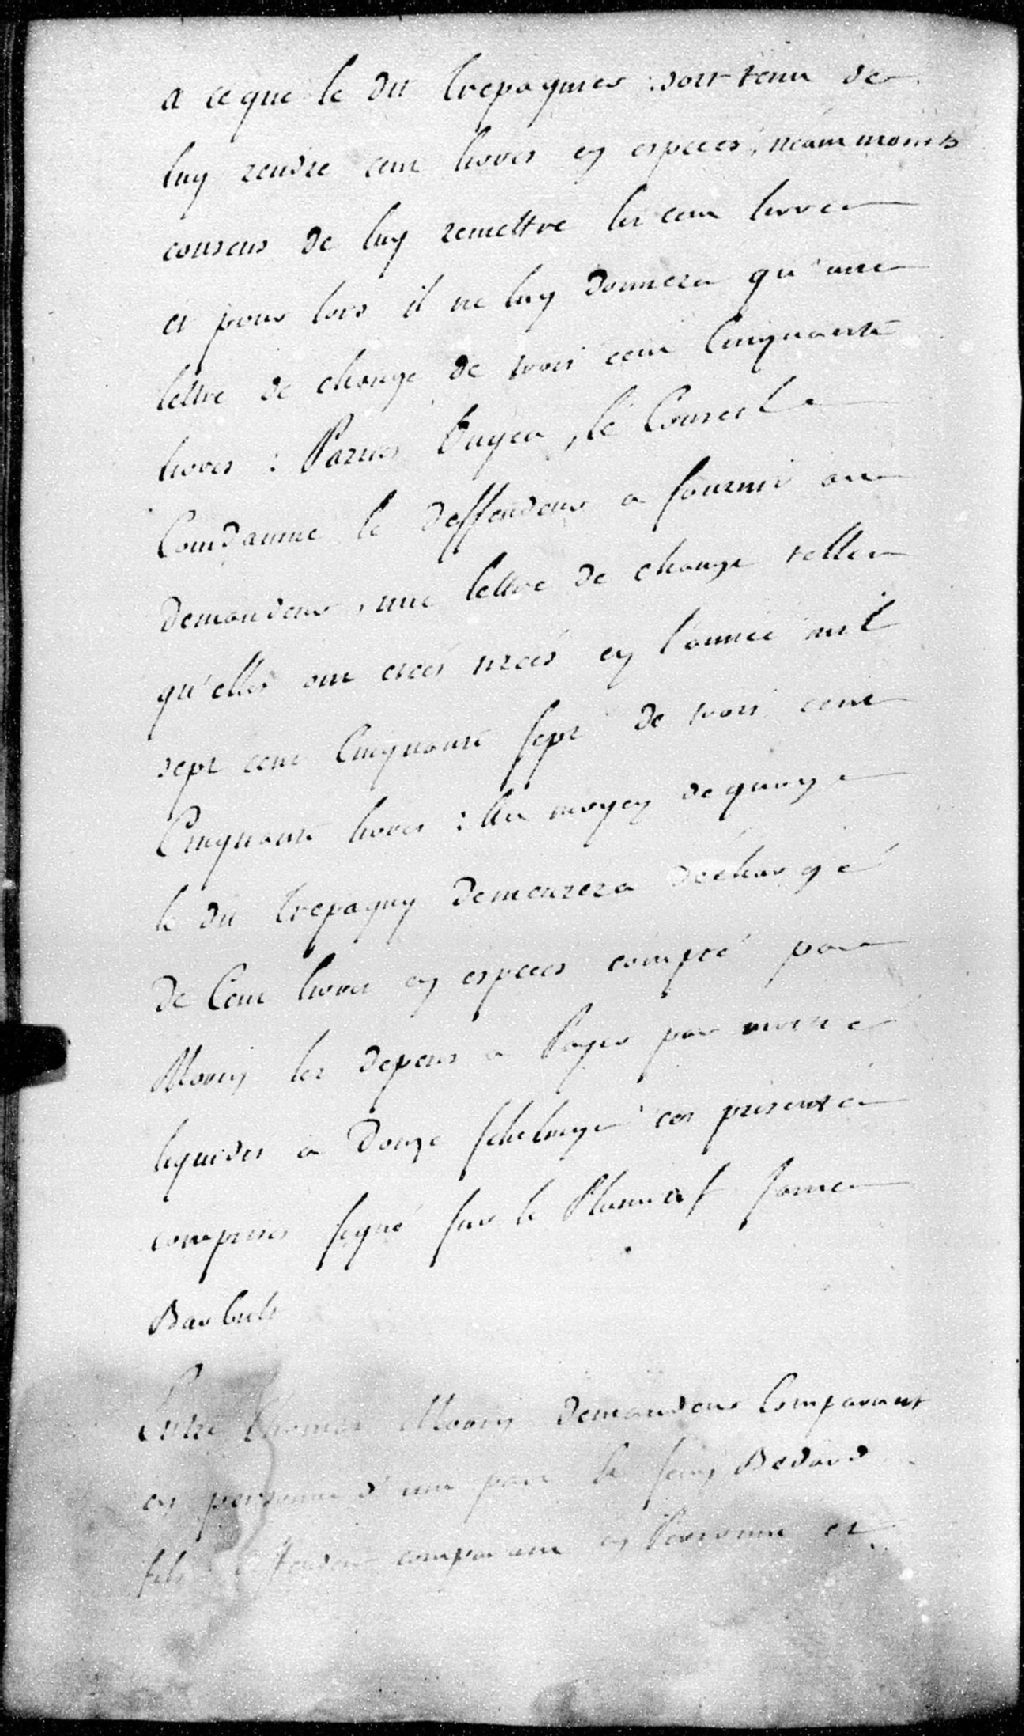 a ce que le dit trepagnies soit tenu de
luy rendre cent livres en especes, neammoins
consens de luy remettre les cent livres
et pour lors il ne luy donnera qu'une
lettre de change de trois cent Cinquante
livres : Parties Ouyes, le Conseil
Condamne le deffendeur a fournir au
demandeur, une lettre de change telle
qu'elles ont etés tirées en l'année mil
sept cent Cinquante sept de trois cent
Cinquante livres : Au moyen de quoy
le dit trepagny demeurera décharge
de Cent livres en especes compté par
Morin les depens a Payer par moitié
liquidés a Douze schelings ces présentes
comprises signé sur le Plumitif
Entre Thomas Morin demandeur Comparant
en personne d'une part le Bedard
fils deffendeur comparant en Personne et